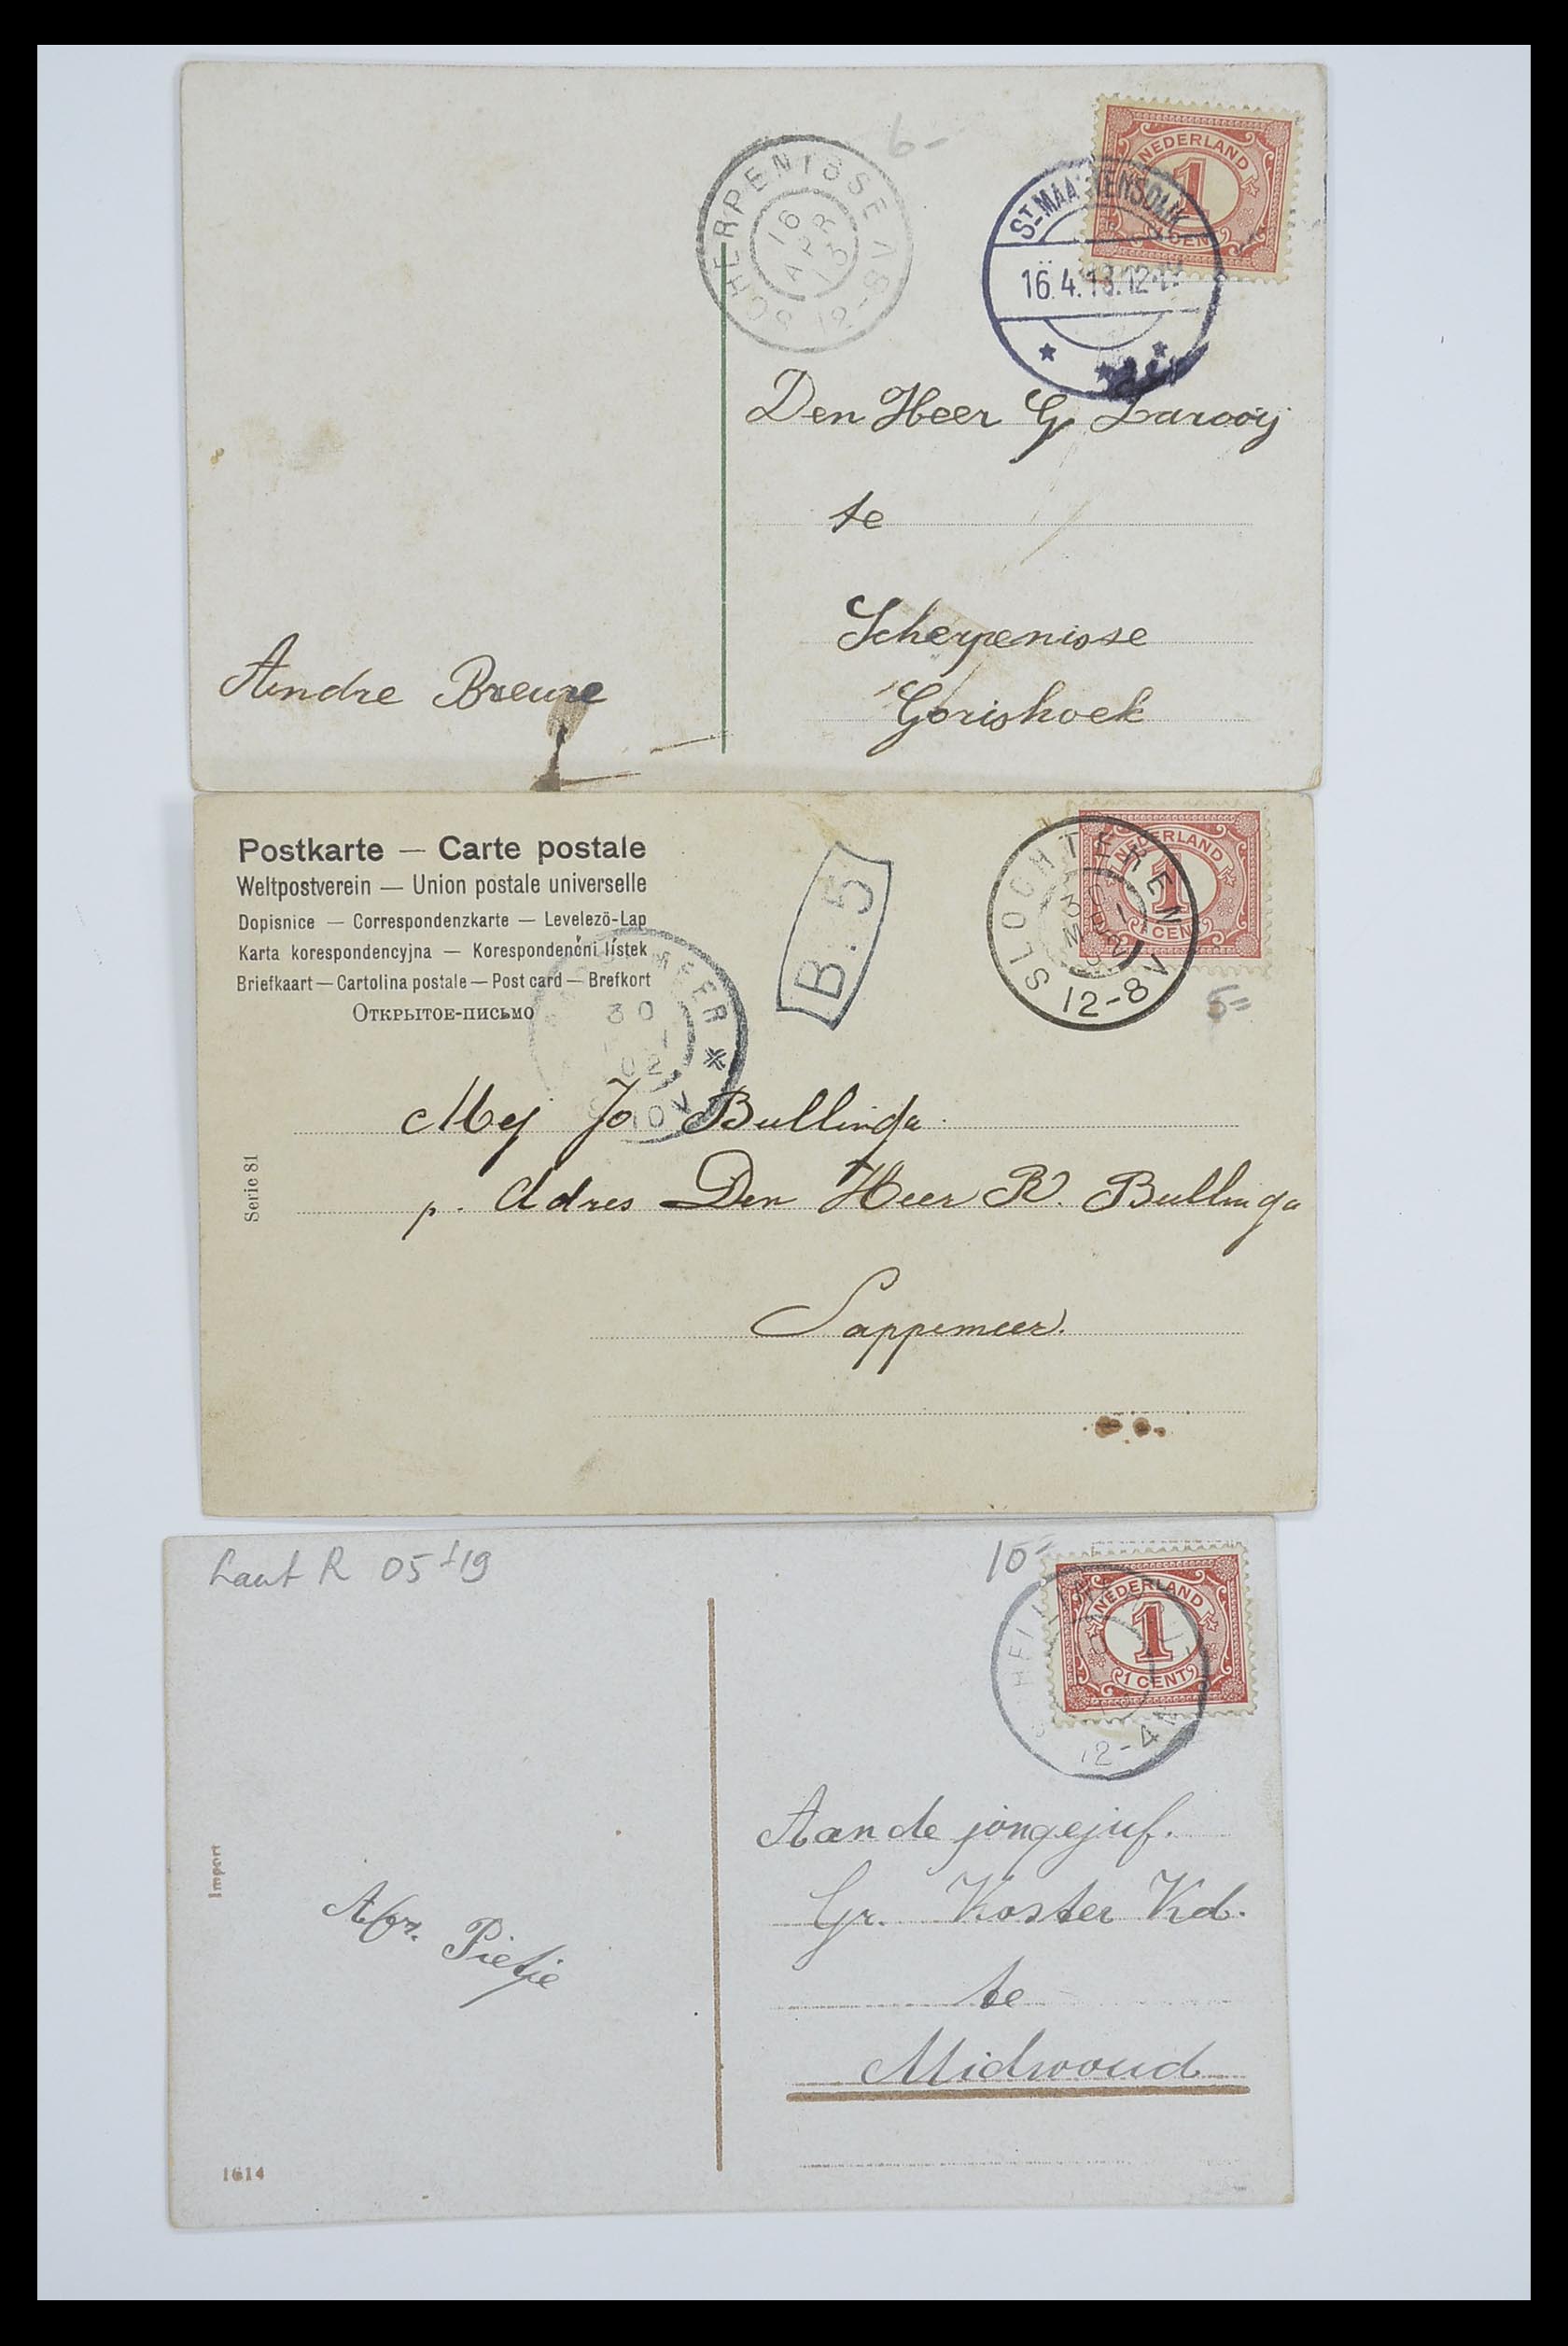 6-
NEDERLAND
1
1 CENT
SCHERPENISSE
16
APR
13
12-8V
ST MAARTENSDIJK
16.4.13.12-
Den Heer G Larooij
te
Scherpenisse
Gorishoek
Andre Breure
Postkarte — Carte postale
Weltpostverein — Union postale universelle
Dopisnice — Correspondenzkarte — Levelezö-Lap
Karta korespondencyjna — Korespondenční lístek
Briefkaart — Cartolina postale — Post card — Brefkort
Открытое-письмо
B. 5
NEDERLAND
1
1 CENT
SLOCHTEREN
12-8V
5=
MEER
30
02
10V
Mej Jo Bullinga
p. Adres Den Heer R. Bullinga
Sappemeer.
Serie 81
Laut R 05-19
10=
NEDERLAND
1
1 CENT
12-4N
Aan de jongejuf.
Gr. Koster Kd.
te
Midwoud
Afz. Pietje
Import
1614